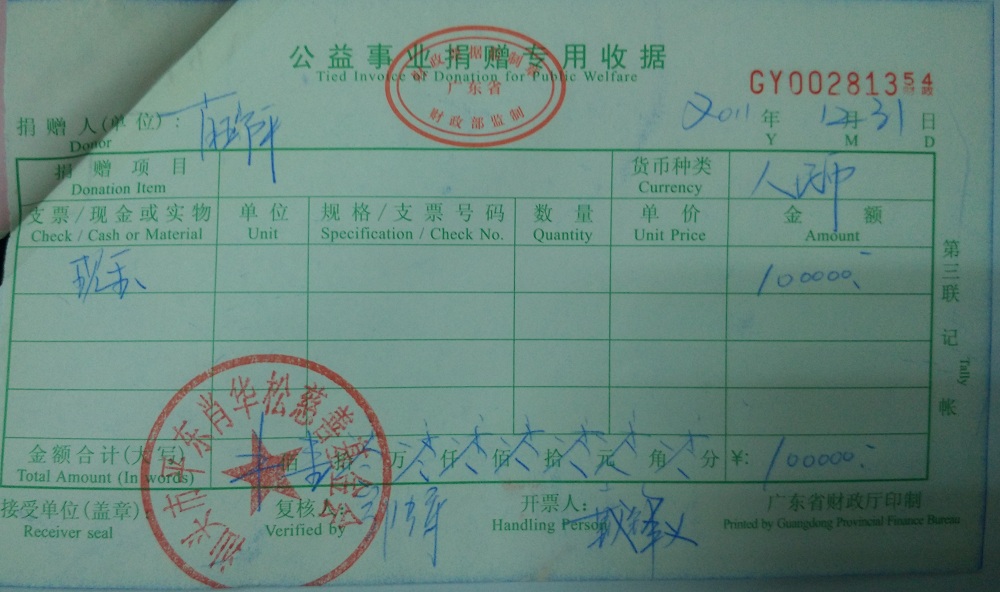 公益事业捐赠专用收据
Tied Invoice of Donation for Public Welfare
广东省
财政部监制
GY00281354
捐赠人(单位):
Donor
2011 年 12 月 31 日
Y M D
捐赠项目 货币种类 人民币
Donation Item Currency
支票/现金或实物 单位 规格/支票号码 数量 单价 金额
Check / Cash or Material Unit Specification / Check No. Quantity Unit Price Amount
现金 100000.-
第三联 记帐
Tally
金额合计(大写) 佰 拾 万 仟 佰 拾 元 角 分 ¥: 100000.-
Total Amount (In words)
接受单位(盖章): 复核人: 开票人: 广东省财政厅印制
Receiver seal Verified by Handling Person Printed by Guangdong Provincial Finance Bureau
东肖华松慈善基金会